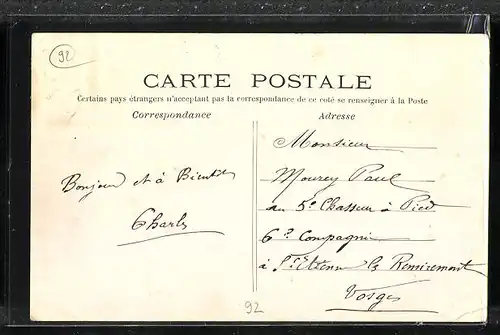 92
CARTE POSTALE
Certains pays étrangers n'acceptant pas la correspondance de ce coté se renseigner à la Poste
Correspondance
Adresse
Bonjour et à Bientôt
Charles
Monsieur
Mourey Paul
au 5e Chasseur à Pied
6e Compagnie
à St Etienne les Remiremont
Vosges
92